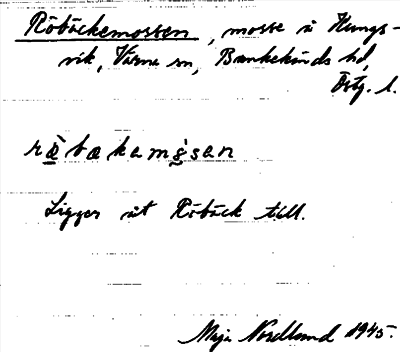 Röbäckemossen, mosse i Kungs-
vik, Värna sn, Bankekinds hd,
Östg. l.
Ligger åt Röbäck till.
Maja Nordlund 1945.